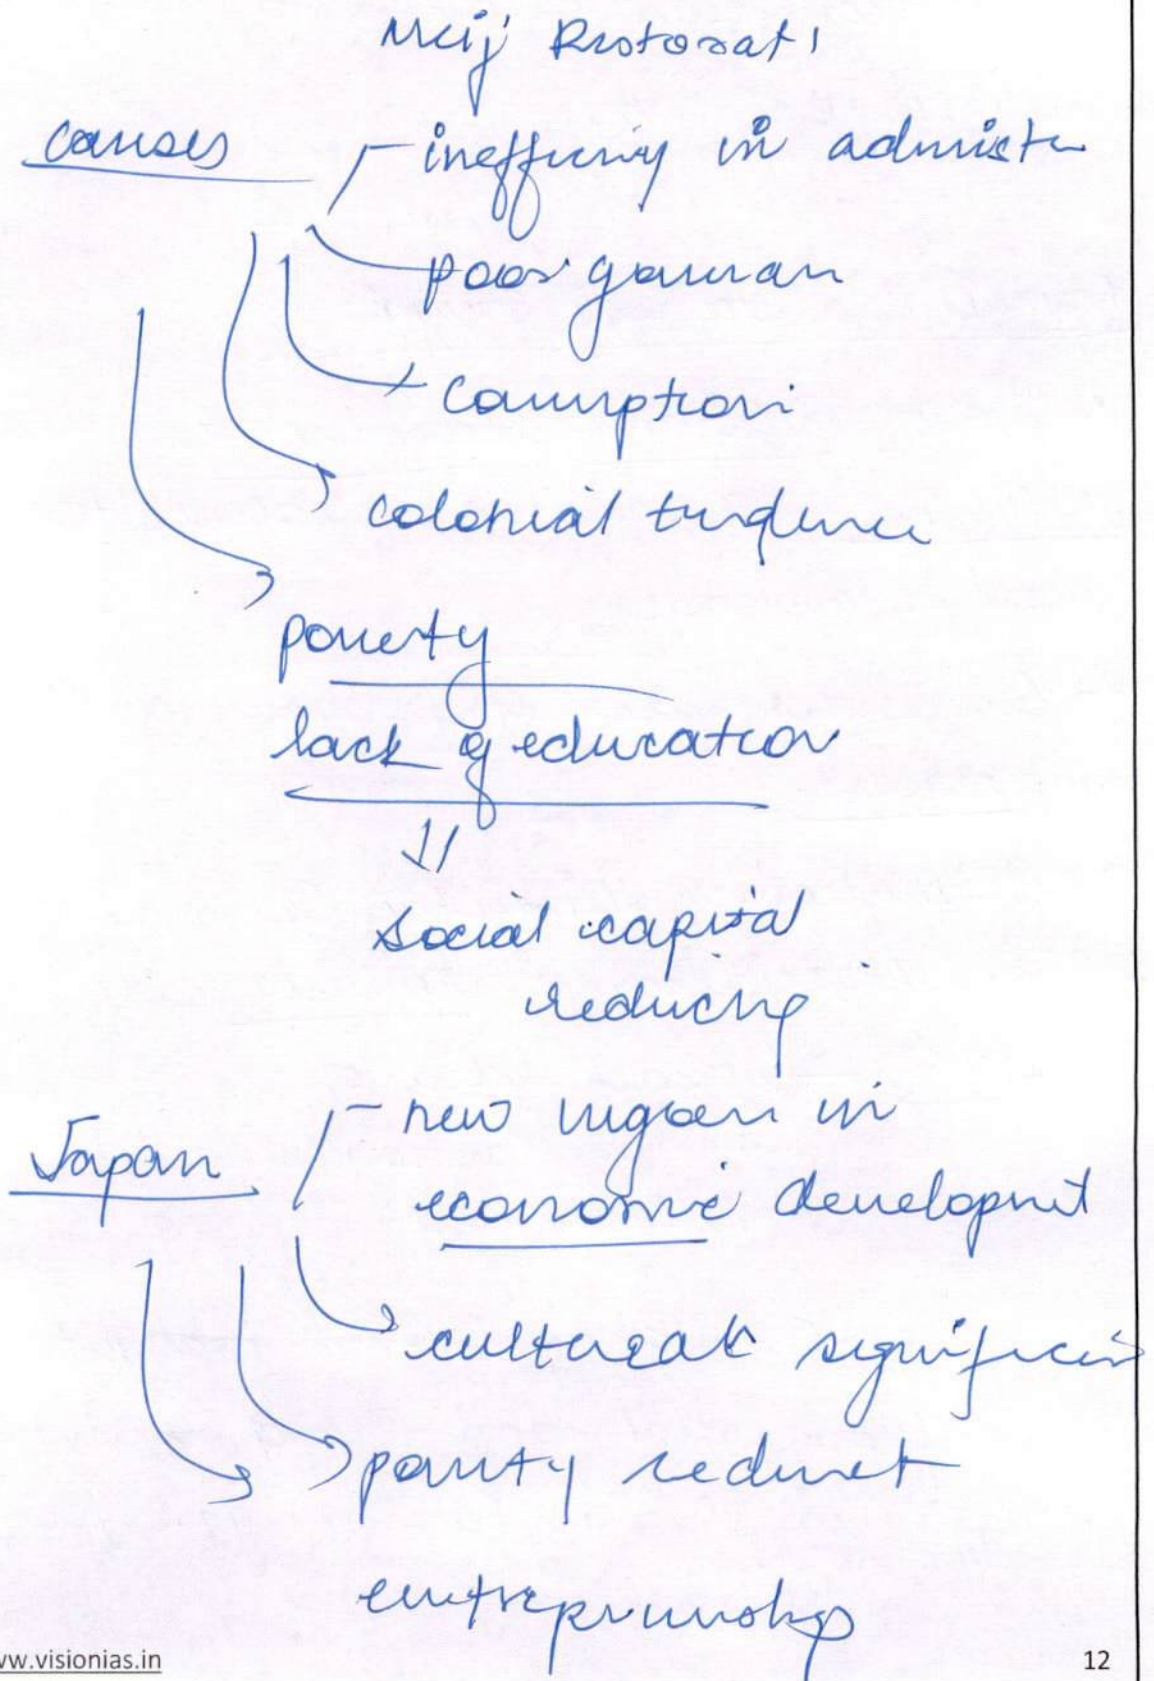 Meij Restorati
causes
inefficiency in administ
poor governan
corruption
colonial tendence
poverty
lack of education
social capital
reducing
new in
Japan
economic developmt
cultural significan
poverty reduct
entrepreneurship
www.visionias.in
12